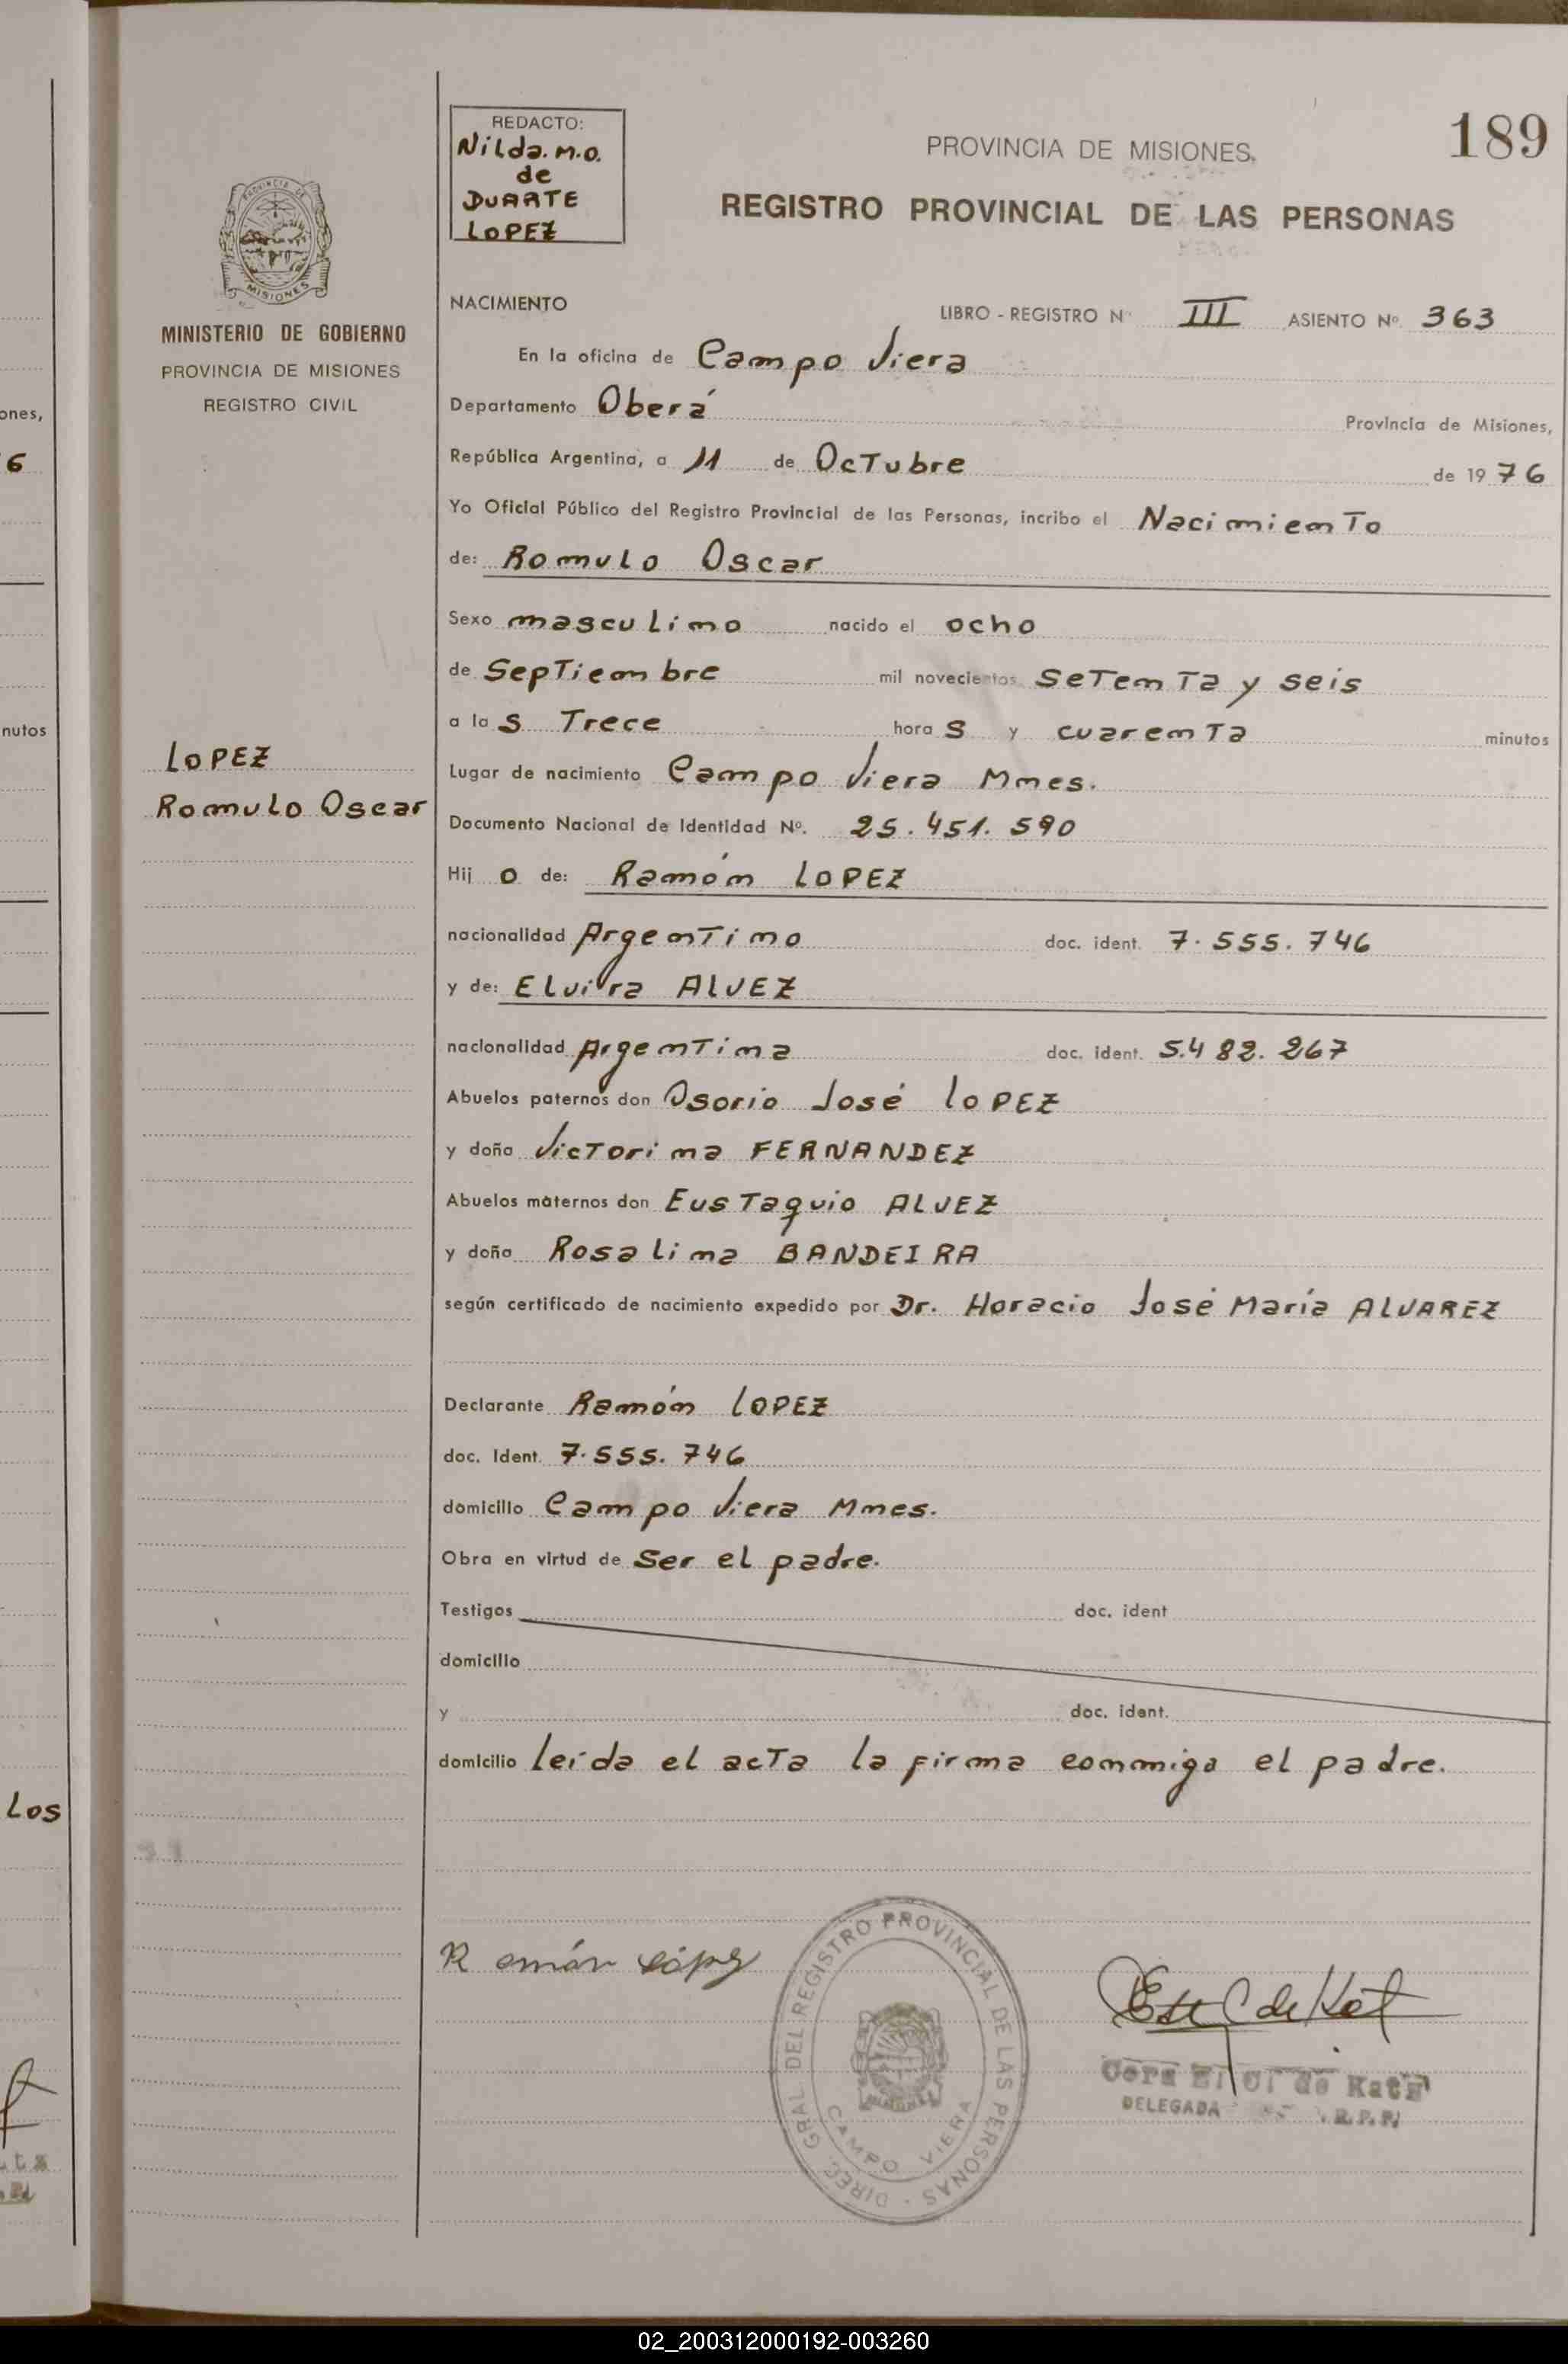 189
REDACTO:
Nilda. M.O.
de
DUARTE
LOPEZ
PROVINCIA DE MISIONES
REGISTRO PROVINCIAL DE LAS PERSONAS
PROVINCIA DE
MISIONES
MINISTERIO DE GOBIERNO
PROVINCIA DE MISIONES
REGISTRO CIVIL
NACIMIENTO LIBRO - REGISTRO N° III ASIENTO Nº 363
En la oficina de Campo Viera
Departamento Oberá Provincia de Misiones,
República Argentina, a 11 de Octubre de 1976
Yo Oficial Público del Registro Provincial de las Personas, incribo el Nacimiento
de: Romulo Oscar
Sexo masculino nacido el ocho
de Septiembre mil novecientos setenta y seis
a las Trece horas y cuarenta minutos
LOPEZ
Romulo Oscar
Lugar de nacimiento Campo Viera Mnes.
Documento Nacional de Identidad Nº. 25.451.590
Hijo de: Ramón LOPEZ
nacionalidad Argentino doc. ident. 7.555.746
y de: Elvira ALVEZ
nacionalidad Argentina doc. ident. 5.482.267
Abuelos paternos don Osorio José LOPEZ
y doña Victorina FERNANDEZ
Abuelos maternos don Eustaquio ALVEZ
y doña Rosalina BANDEIRA
según certificado de nacimiento expedido por Dr. Horacio José María ALVAREZ
Declarante Ramón LOPEZ
doc. Ident. 7.555.746
domicilio Campo Viera Mnes.
Obra en virtud de Ser el padre.
Testigos doc. ident
domicilio
y doc. ident.
domicilio leída el acta la firma conmigo el padre.
Ramón López
DIREC. GRAL DEL REGISTRO PROVINCIAL DE LAS PERSONAS
CAMPO VIERA
de Katz
DELEGADA R.P.P.
ones,
6
nutos
Los
02_200312000192-003260